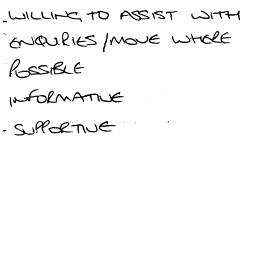 - WILLING TO ASSIST WITH
ENQUIRIES / MOVE WHERE
POSSIBLE
INFORMATIVE
- SUPPORTIVE